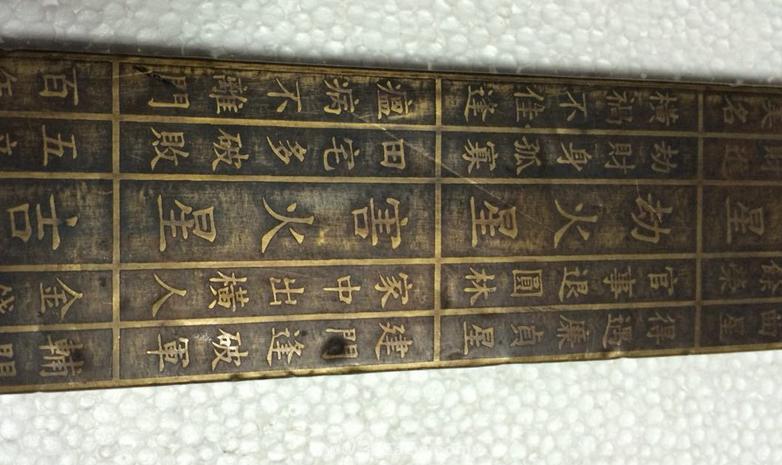 曲星
星
得遇廉貞星
官事退圓林
劫火星
劫財身孤寡
橫禍不 逢
建門逢破軍
家中出橫人
害火星
田宅多破敗
瘟病不離門
輔門
金錢
吉
五
百年